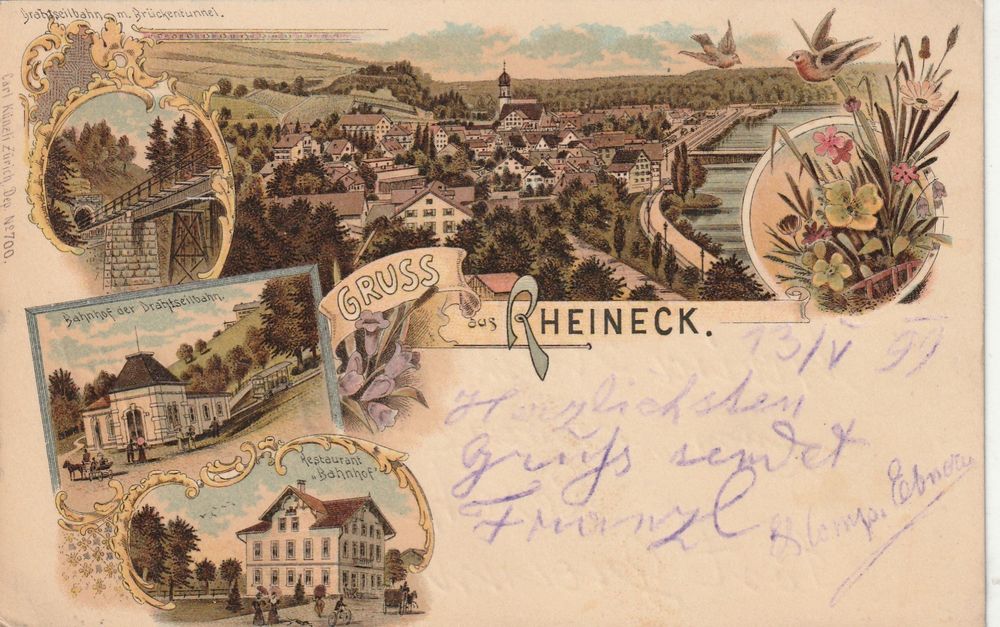 Drahtseilbahn m. Brückentunnel.
Carl Künzli Zürich, Dep. No 700.
GRUSS
aus RHEINECK.
Bahnhof der Drahtseilbahn.
Restaurant
z. Bahnhof
13/V 99
Herzlichsten
Gruß sendet
Franzl
Ebner